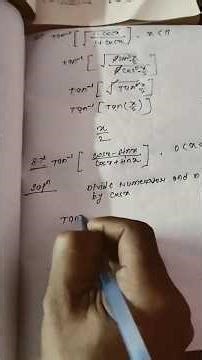 tan⁻¹ [√(1-cosx / 1+cosx)] , x < π
tan⁻¹ [√(2sin²x/2 / 2cos²x/2)]
tan⁻¹ [√(Tan²x/2)]
Tan⁻¹ [Tan(x/2)]
x/2
Tan⁻¹ [cosx-sinx / cosx+sinx] , 0 < x
Solⁿ Divide Numerator and
by cosx
Tan